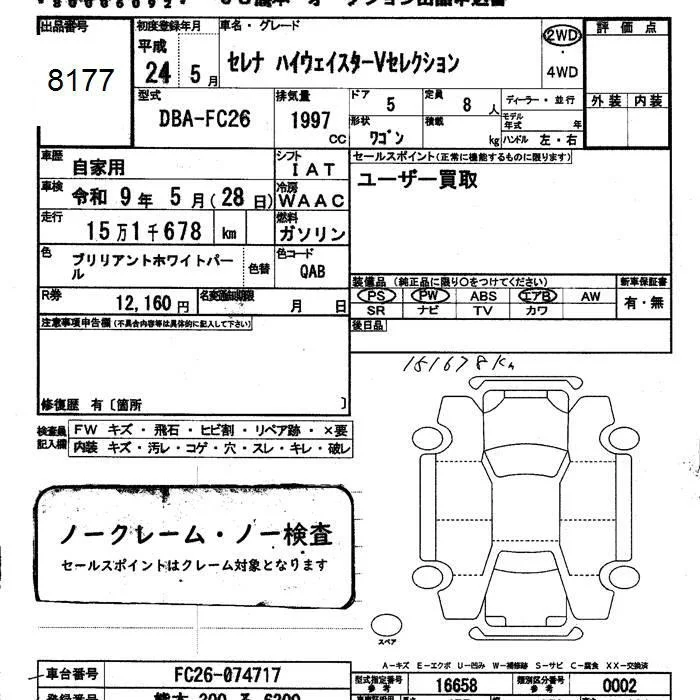 出品番号
8177
初度登録年月
平成
24 5月
車名・グレード
セレナ ハイウェイスターVセレクション
2WD
・
4WD
評価点
外装 内装
型式
DBA-FC26
排気量
1997
CC
ドア 5
定員 8人
ディーラー・並行
モデル年式 年
形状 ワゴン
積載 kg
ハンドル 左・右
車歴 自家用
シフト IAT
セールスポイント(正常に機能するものに限ります)
ユーザー買取
車検 令和 9年 5月(28日)
冷房 WAAC
走行 15万1千678 km
燃料 ガソリン
色 ブリリアントホワイトパール
色替
色コード QAB
装備品(純正品に限り○をつけてください)
新車保証書
PS PW ABS エアB AW
有・無
SR ナビ TV カワ
R券 12,160円
名変通知期限 月 日
後日品
注意事項申告欄(不具合内容等は具体的に記入して下さい)
151678Km
修復歴 有〔箇所 〕
検査員記入欄
FW キズ・飛石・ヒビ割・リペア跡・×要
内装 キズ・汚レ・コゲ・穴・スレ・キレ・破レ
ノークレーム・ノー検査
セールスポイントはクレーム対象となります
スペア
A-キズ E-エクボ U-凹み W-補修跡 S-サビ C-腐食 XX-交換済
車台番号 FC26-074717
型式指定番号 参考 16658
類別区分番号 参考 0002